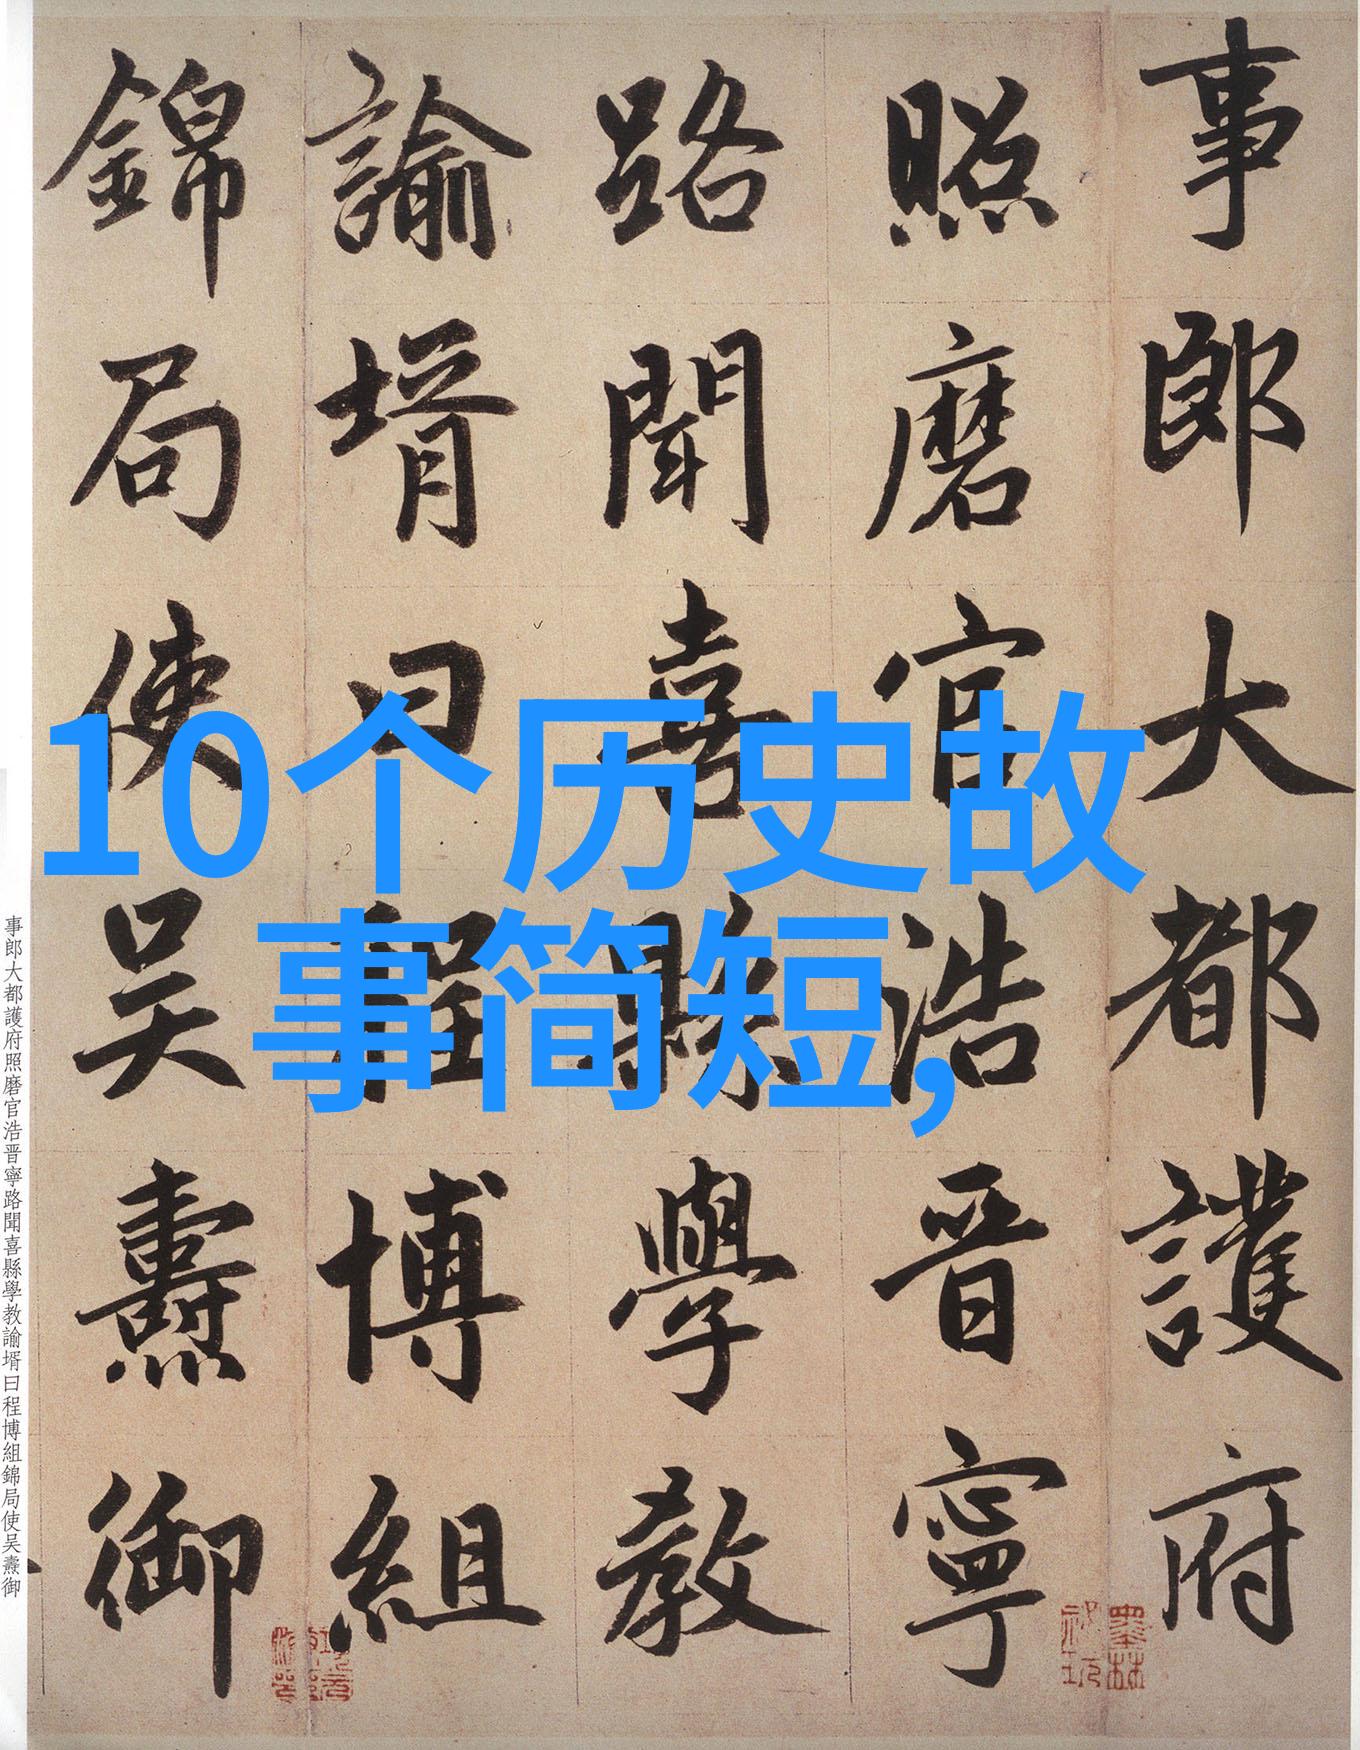 事郎大都護府
照磨官浩晋寧
路聞喜縣學教
諭壻曰程博組
錦局使吴燾御
10个历史故
事简短,
事郎大都護府照磨官浩晋寧路聞喜縣學教諭壻曰程博組錦局使吴燾御